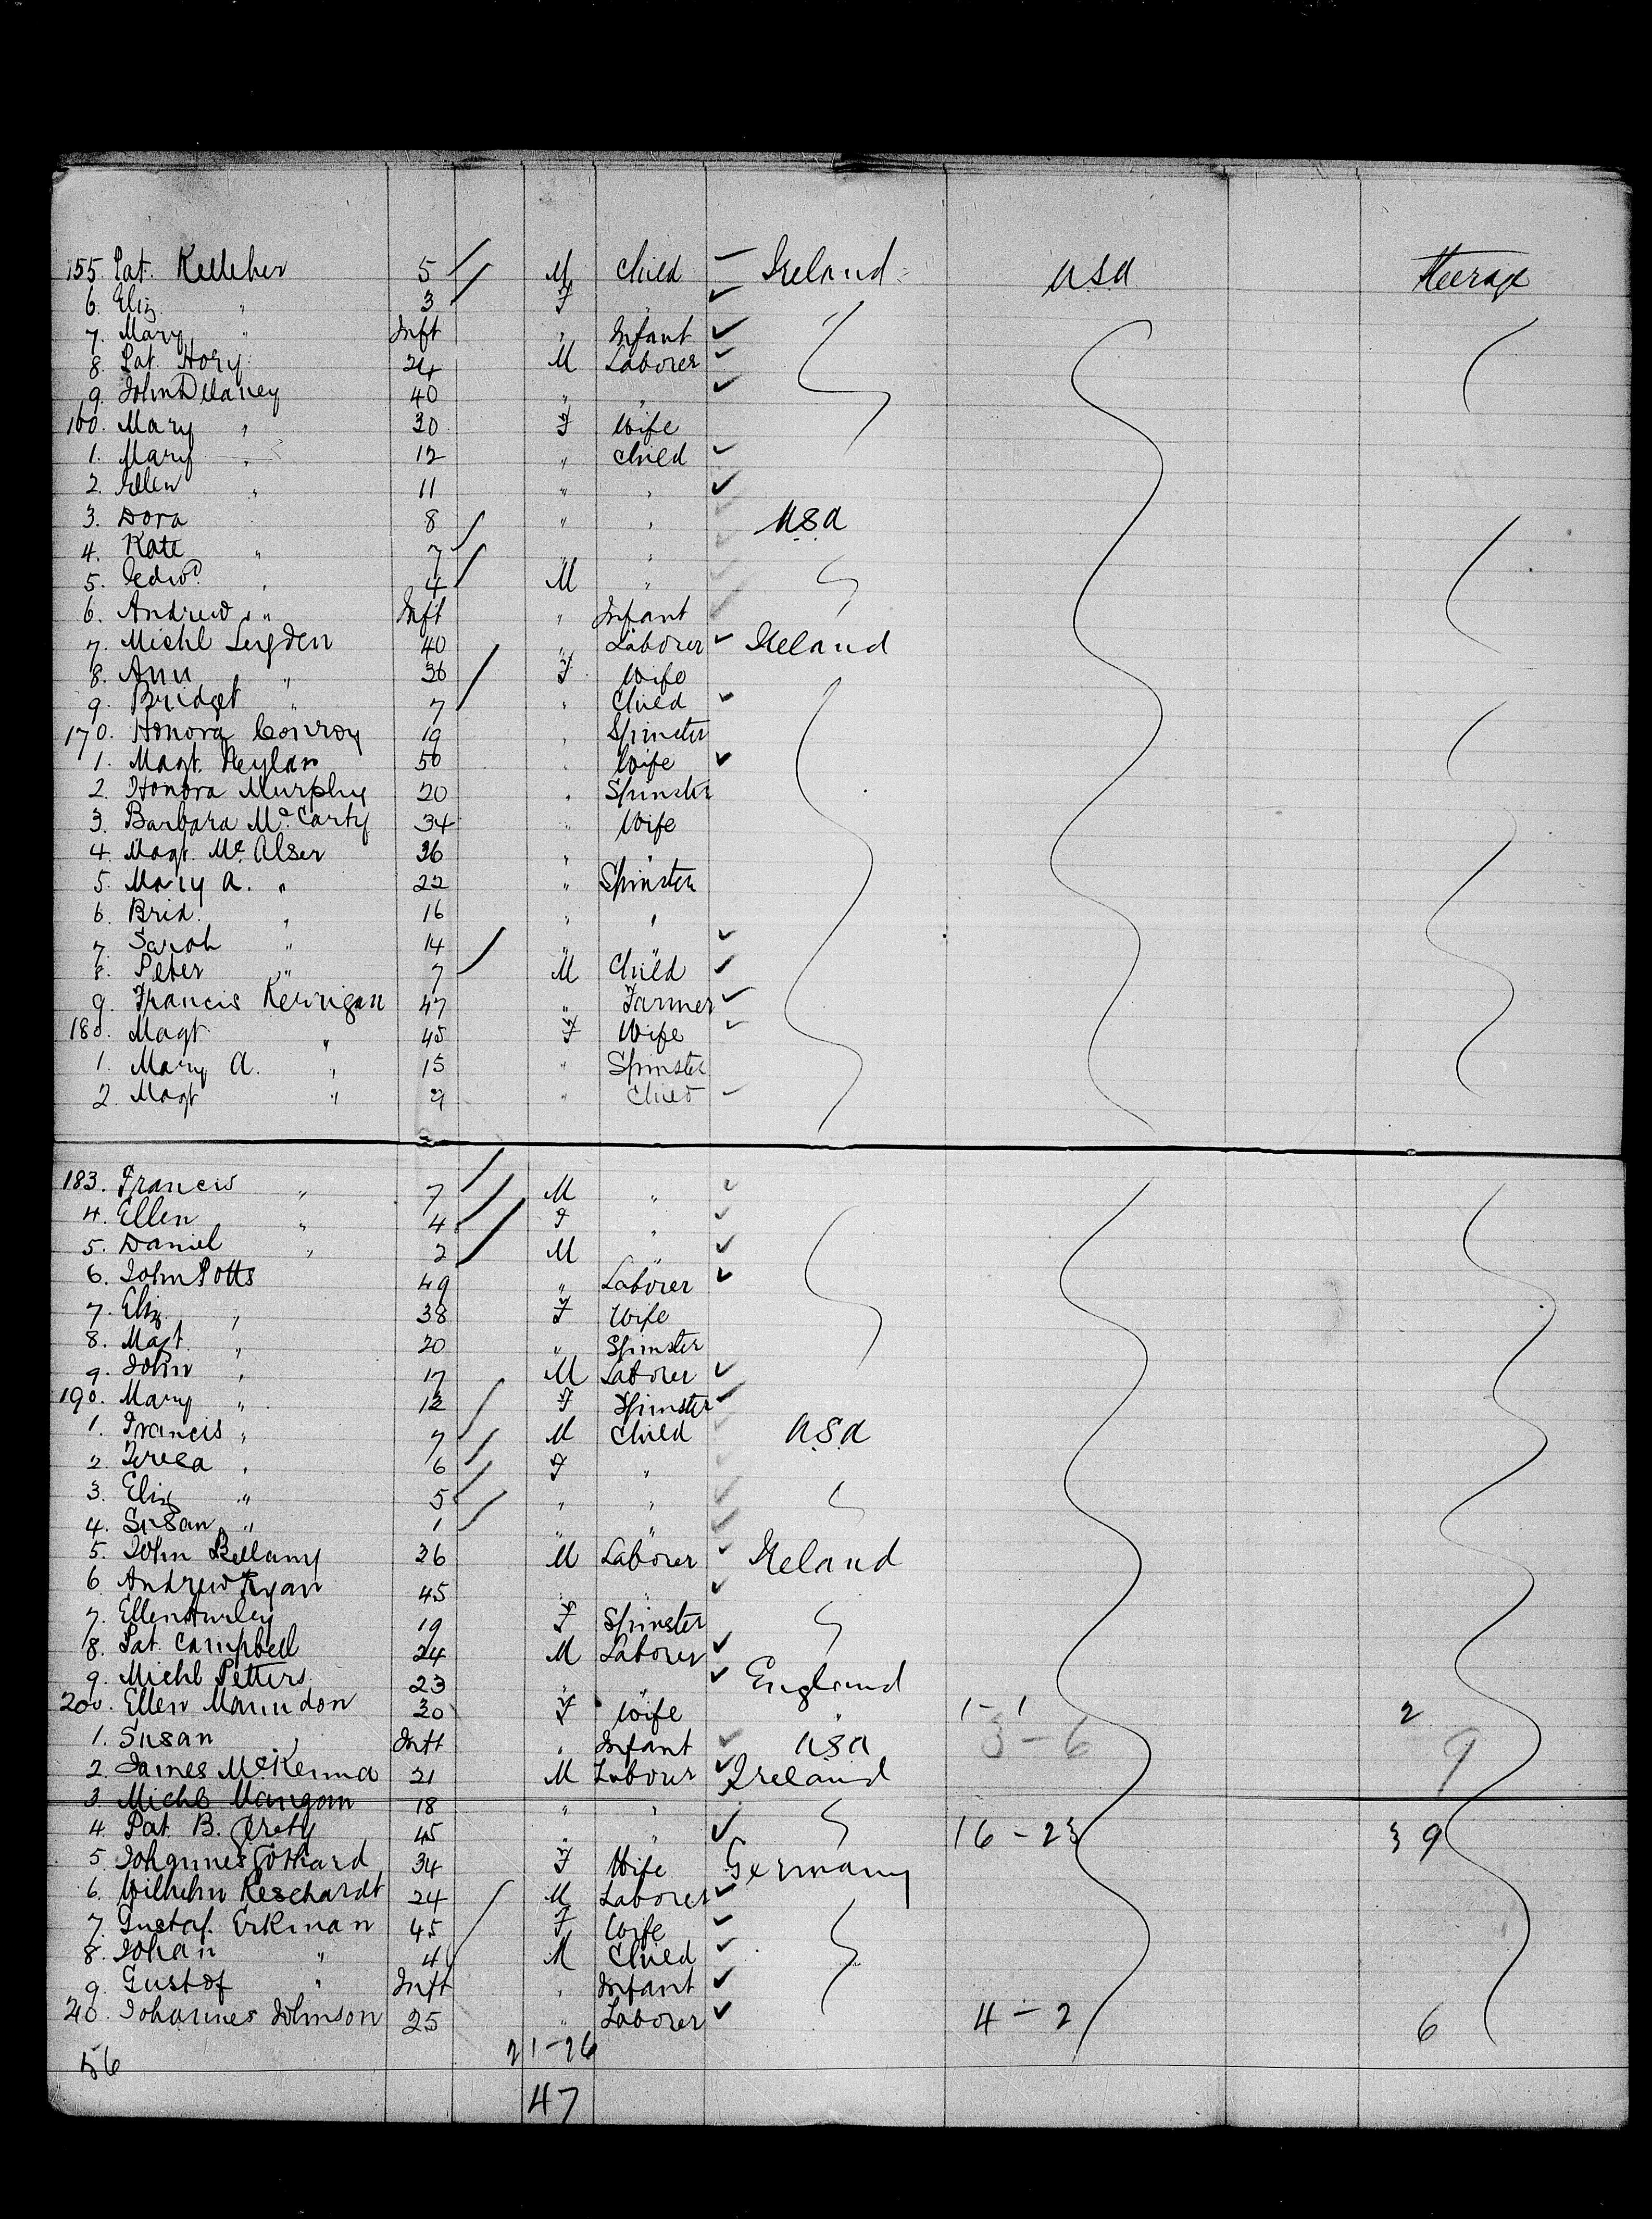 155. Pat. Kelleher 5 M Child Ireland USA Steerage
6. Eliz " 3 F "
7. Mary " Inft " Infant
8. Pat. Hory 24 M Laborer
9. John Delaney 40 " "
160. Mary " 30 F Wife
1. Mary " 12 " Child
2. Ellen " 11 " "
3. Dora 8 " " USA
4. Kate " 7 " "
5. Edwd " 4 M "
6. Andrew " Inft " Infant
7. Michl 40 " Laborer Ireland
8. Ann " 36 F Wife
9. Bridget " 7 " Child
170. Honora Conroy 19 " Spinster
1. Magt. Neylan 50 " Wife
2. Honora Murphy 20 " Spinster
3. Barbara Mc Carty 34 " Wife
4. Magt. Mc Alser 36 " "
5. Mary A. " 22 " Spinster
6. Brid. " 16 " "
7. Sarah " 14 " "
8. Peter " 7 M Child
9. Francis Kerrigan 47 " Farmer
180. Magt " 45 F Wife
1. Mary A. " 15 " Spinster
2. Magt " 9 " Child
183. Francis " 7 M "
4. Ellen " 4 F "
5. Daniel " 2 M "
6. John Potts 49 " Laborer
7. Eliz " 38 F Wife
8. Magt. " 20 " Spinster
9. John " 17 M Laborer
190. Mary " 12 F Spinster
1. Francis " 7 M Child USA
2. " 6 F "
3. Eliz " 5 " "
4. Susan " 1 " "
5. John Bellamy 26 M Laborer Ireland
6 Andrew Ryan 45 " "
7. Ellen Hurley 19 F Spinster
8. Pat. Campbell 24 M Laborer
9. Michl Petters 23 " " England
200. Ellen Marindon 30 F Wife " 1-1 2
1. Susan " Inft " Infant USA 3-6 9
2. James McKenna 21 M Labour Ireland
3. Michl Mangan 18 " "
4. Pat. B. 45 " " 16-23 39
5. Johannes 34 F Wife Germany
6. Wilhelm Reschardt 24 M Laborer
7. Gustaf. Erkman 45 F Wife
8. Johan " 4 M Child
9. Gustof " Inft " Infant
210. Johannes Johnson 25 " Laborer 4-2 6
21-26
56
47